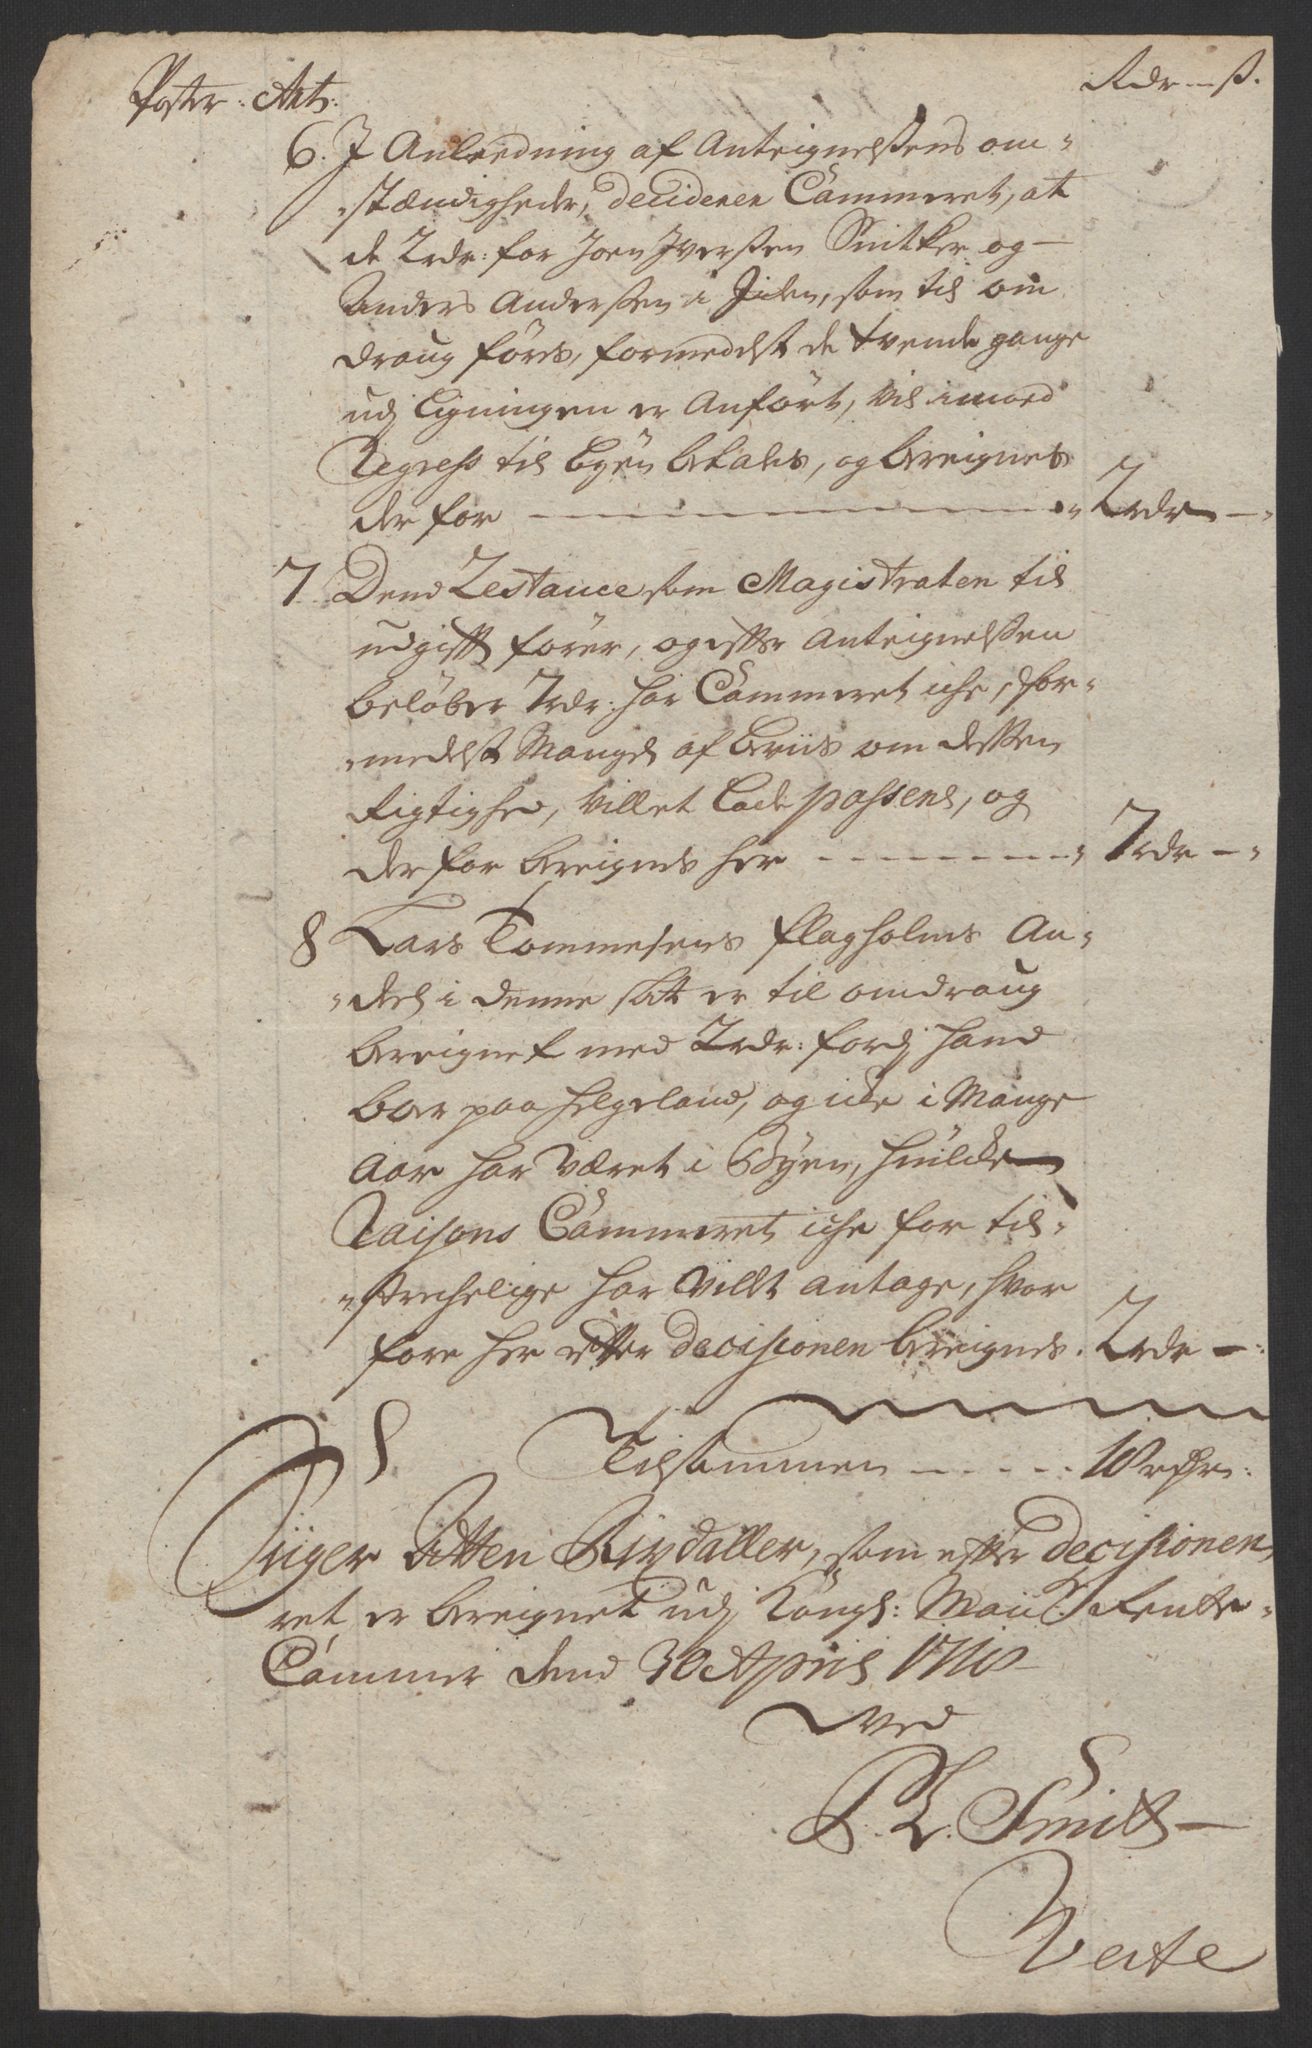 Poster: Art: Rdr – ß.
6. I Anledning af Anteignelßens om-
stændigheder, deciderer Cammeret, at
de 2 rdr: for Joen Iverßen Snitker og
Anders Anderßen i Iilen, som til om
draug føres, formedelst de tvende gange
udj Ligningen er Anført, vil imod
Regress til Byen betales, og bereignes
der for 2 rdr –
7 Dend Restance som Magistraten til
udgifft fører, og efter Anteignelßen
beløber 7 rdr: har Cammeret iche, for-
medelst Mangel af beviis om deßen
Rigtighed, villet lade passere, og
der for bereignes her 7 rdr –
8 Lars Tommesens Flagholms An-
deel i denne skatt er til omdraug
bereignet med 2 rdr: fordj hand
boer paa Helgeland, og icke i Mange
Aar har været i Byen, hvilcke
Raisons Cammeret iche for til-
strechelige har villet antage, hvor
fore her efter decisionen bereignes. 2 rdr –
Tilsammen 10 rdr:
Siger Tatten Rixdaller, som efter decisionen
ret er bereignet udj Kongl: Mait: Rente-
Cammer dend 30 April 1710
Ved
P. L. Smith
Verte